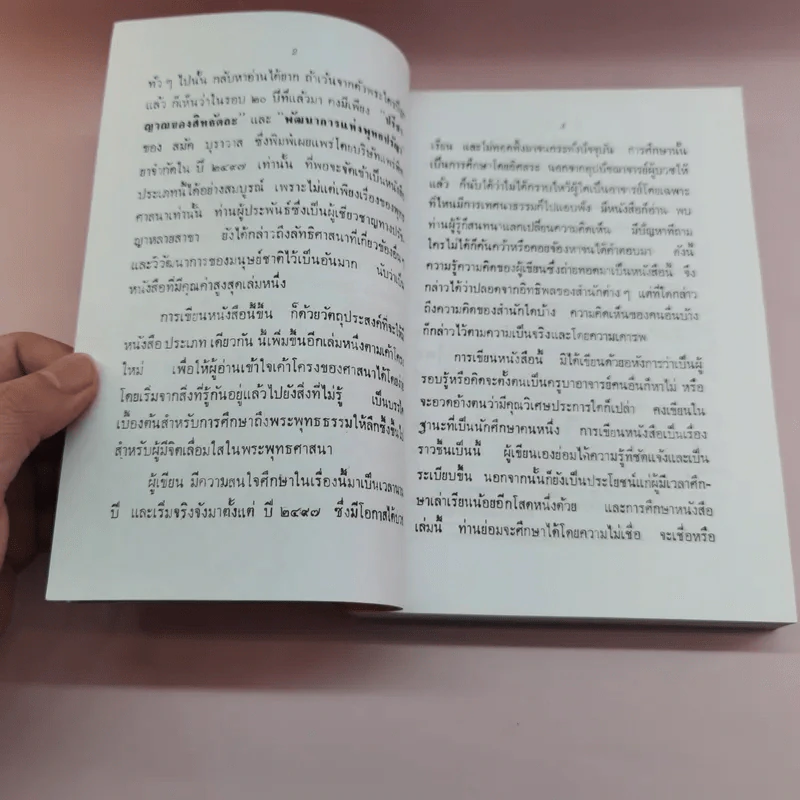 ๒
ทั่ว ๆ ไปนั้น กลับหาอ่านได้ยาก ถ้าเว้นจากตัวพระไตรปิฎก
แล้ว ก็เห็นว่าในรอบ ๒๐ ปีที่แล้วมา คงมีเพียง "ปรัชา
ญาณของสิทธัตถะ" และ "พัฒนาการแห่งพุทธปรัชญา"
ของ สมัค บุราวาส ซึ่งพิมพ์เผยแพร่โดยบริษัทแพร่พิทยา
ยาจำกัดใน ปี ๒๔๙๗ เท่านั้น ที่พอจะจัดเข้าเป็นหนังสือ
ประเภทนี้ได้อย่างสมบูรณ์ เพราะไม่แต่เพียงเรื่องของพุทธ
ศาสนาเท่านั้น ท่านผู้ประพันธ์ซึ่งเป็นผู้เชี่ยวชาญทางปรัช
ญาหลายสาขา ยังได้กล่าวถึงลัทธิศาสนาที่เกี่ยวข้อง
และวิวัฒนาการของมนุษย์ชาติไว้เป็นอันมาก นับว่าเป็น
หนังสือที่มีคุณค่าสูงสุดเล่มหนึ่ง
การเขียนหนังสือนี้ขึ้น ก็ด้วยวัตถุประสงค์ที่จะให้มี
หนังสือ ประเภท เดียวกัน นี้เพิ่มขึ้นอีกเล่มหนึ่งตามเค้าโครง
ใหม่ เพื่อให้ผู้อ่านเข้าใจเค้าโครงของศาสนาได้โดย
โดยเริ่มจากสิ่งที่รู้กันอยู่แล้วไปยังสิ่งที่ไม่รู้ เป็นบรรได
เบื้องต้นสำหรับการศึกษาถึงพระพุทธธรรมให้ลึกซึ้งขึ้นไป
สำหรับผู้มีจิตเลื่อมใสในพระพุทธศาสนา
ผู้เขียน มีความสนใจศึกษาในเรื่องนี้มาเป็นเวลานาน
ปี และเริ่มจริงจังมาตั้งแต่ ปี ๒๔๙๗ ซึ่งมีโอกาสได้บวช
๓
เรียน และไม่ทอดทิ้งมาจนกระทั่งปัจจุบัน การศึกษานั้น
เป็นการศึกษาโดยอิสสระ นอกจากอุปัชฌาจารย์ผู้บวชให้
แล้ว ก็นับได้ว่าไม่ได้กราบไหว้ผู้ใดเป็นอาจารย์โดยเฉพาะ
ที่ไหนมีการเทศนาธรรมก็ไปแอบฟัง มีหนังสือก็อ่าน พบ
ท่านผู้รู้ก็สนทนาแลกเปลี่ยนความคิดเห็น มีปัญหาที่ถาม
ใครไม่ได้ก็ค้นคว้าหรือคอยจ้องหาจนได้คำตอบมา ดังนั้
ความรู้ความคิดของผู้เขียนซึ่งถ่ายทอดมาเป็นหนังสือนี้ จึง
กล่าวได้ว่าปลอดจากอิทธิพลของสำนักต่าง ๆ แต่ที่ใดกล่าว
ถึงความคิดของสำนักใดบ้าง ความคิดเห็นของคนอื่นบ้าง
ก็กล่าวไว้ตามความเป็นจริงและโดยความเคารพ
การเขียนหนังสือนี้ มิได้เขียนด้วยอหังการว่าเป็นผู้
รอบรู้หรือคิดจะตั้งตนเป็นครูบาอาจารย์คนอื่นก็หาไม่ หรือ
จะอวดอ้างตนว่ามีคุณวิเศษประการใดก็เปล่า คงเขียนใน
ฐานะที่เป็นนักศึกษาคนหนึ่ง การเขียนหนังสือเป็นเรื่อง
ราวขึ้นเป็นนี้ ผู้เขียนเองย่อมได้ความรู้ที่ชัดแจ้งและเป็น
ระเบียบขึ้น นอกจากนั้นก็ยังเป็นประโยชน์แก่ผู้มีเวลาศึก-
ษาเล่าเรียนน้อยอีกโสดหนึ่งด้วย และการศึกษาหนังสือ
เล่มนี้ ท่านย่อมจะศึกษาได้โดยความไม่เชื่อ จะเชื่อหรือ